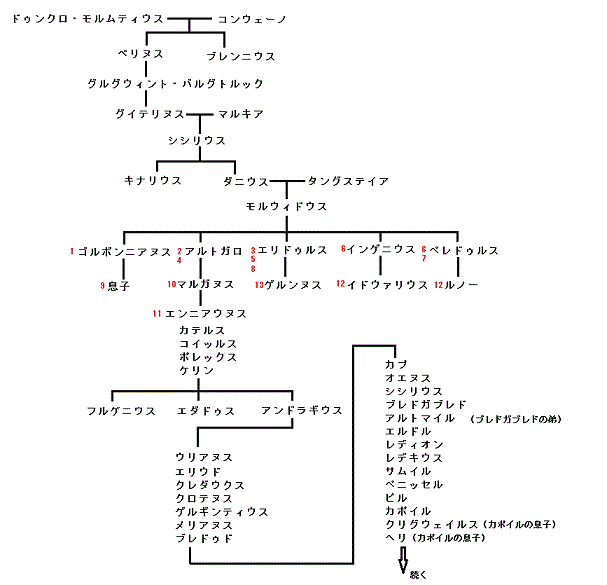 ドゥンクロ・モルムティウス コンウェーノ
ベリヌス ブレンニウス
グルグウィント・バルグトルック
グイテリヌス マルキア
シシリウス
キナリウス ダニウス タングステイア
モルウィドウス
1 ゴルボンニアヌス 2 4 アルトガロ 3 5 8 エリドゥルス 6 インゲニウス 6 7 ペレドゥルス
9 息子 10 マルガヌス 13 ゲルンヌス 12 イドウァリウス 12 ルノー
11 エンニアウヌス
カテルス
コイッルス
ポレックス
ケリン
フルゲニウス エダドゥス アンドラギウス
ウリアヌス
エリウド
クレダウクス
クロテヌス
ゲルギンティウス
メリアヌス
ブレドゥド
カプ
オエヌス
シシリウス
ブレドガブレド
アルトマイル (ブレドガブレドの弟)
エルドル
レディオン
レデキウス
サムイル
ペニッセル
ピル
カポイル
クリグウェイルス (カポイルの息子)
ヘリ (カポイルの息子)
続く